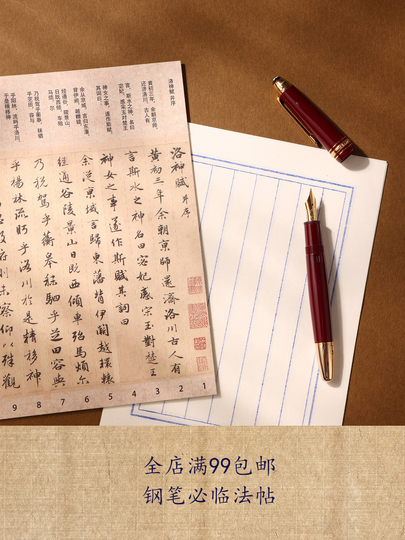 洛神赋 并序
黄初三年，余朝京师，
还济洛川。古人有
言，斯水之神，名曰
宓妃。感宋玉对楚王
神女之事，遂作斯赋，
其词曰：
余从京域，言归东藩，
背伊阙，越轘辕，
经通谷，陵景山。
日既西倾，车殆
马烦。尔
乃税驾乎蘅皋，秣驷
乎芝田，容与
乎阳林，流眄乎洛川。
于是精移神
洛神賦 并序
黄初三年余朝京師還濟洛川古人有
言斯水之神名曰宓妃感宋玉對楚王
神女之事遂作斯賦其詞曰
余從京域言歸東藩背伊闕越轘轅
經通谷陵景山日既西傾車殆馬煩尔
乃税駕乎蘅皋秣駟乎芝田容與
乎楊林流眄乎洛川於是精移神
則未察仰以殊觀
9 8 7 6 5 4 3 2 1
全店满99包邮
钢笔必临法帖